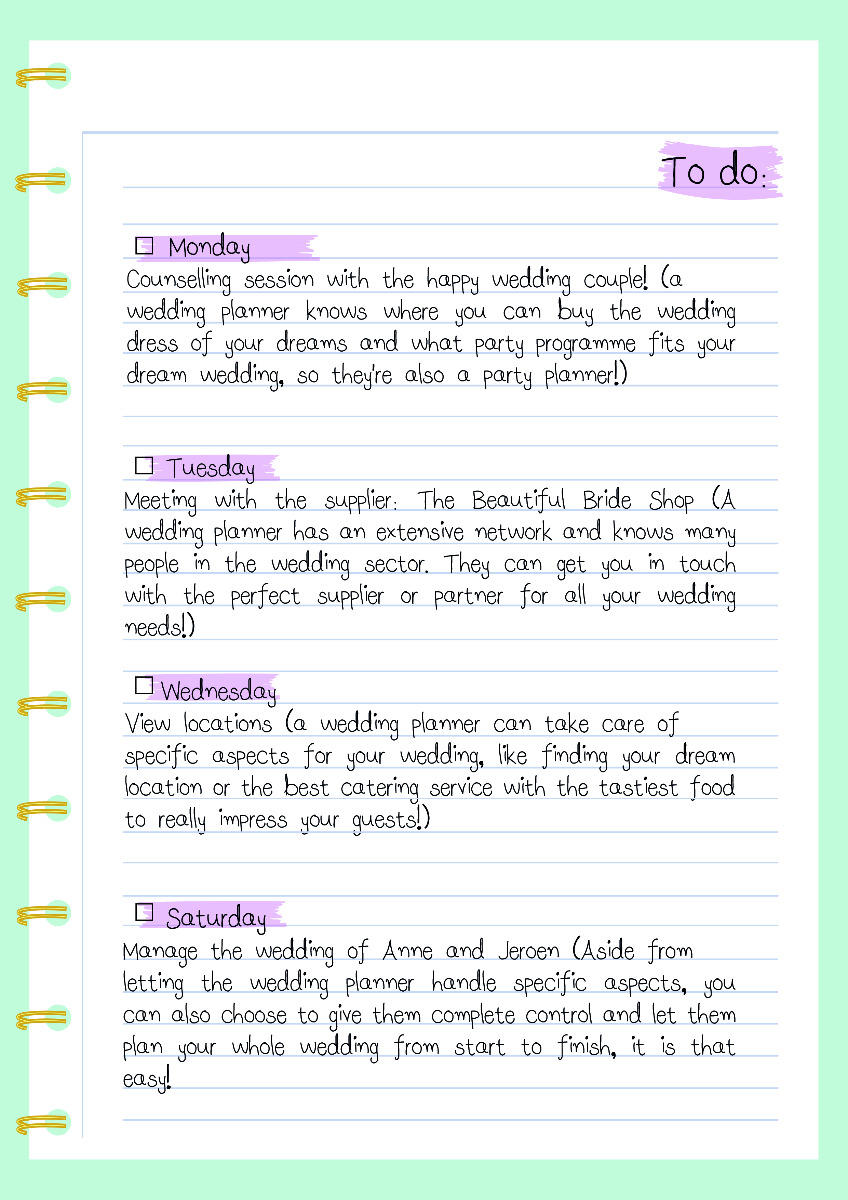 To do:
☐ Monday
Counselling session with the happy wedding couple! (a
wedding planner knows where you can buy the wedding
dress of your dreams and what party programme fits your
dream wedding, so they're also a party planner!)
☐ Tuesday
Meeting with the supplier: The Beautiful Bride Shop (A
wedding planner has an extensive network and knows many
people in the wedding sector. They can get you in touch
with the perfect supplier or partner for all your wedding
needs!)
☐ Wednesday
View locations (a wedding planner can take care of
specific aspects for your wedding, like finding your dream
location or the best catering service with the tastiest food
to really impress your guests!)
☐ Saturday
Manage the wedding of Anne and Jeroen (Aside from
letting the wedding planner handle specific aspects, you
can also choose to give them complete control and let them
plan your whole wedding from start to finish, it is that
easy!